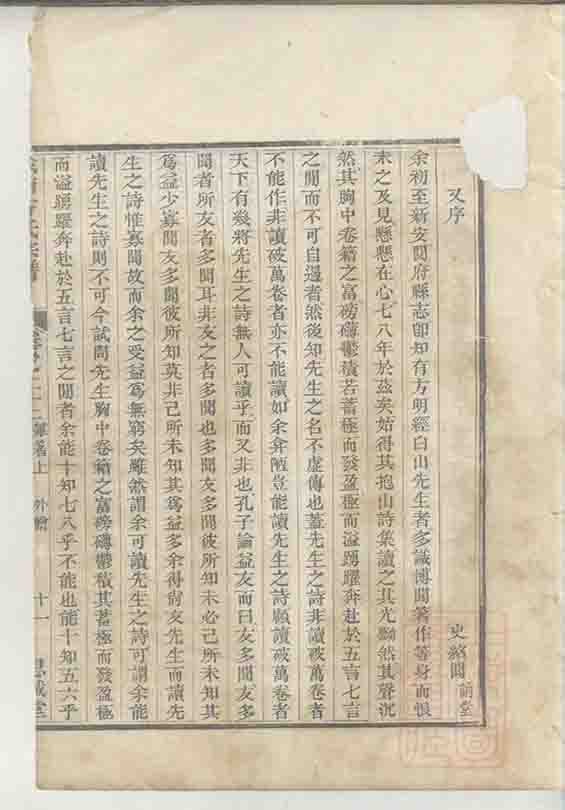 又序
史 閣 萌堂
余初至新安閱府縣志即知有方明經白山先生者多識博聞著作等身而恨
未之及見懸懸在心七八年於茲矣始得其抱山詩集讀之其光黝然其聲沉
然其胸中卷籍之富磅礴鬱積若蓄極而發盈極而溢踴躍奔赴於五言七言
之閒而不可自遏者然後知先生之名不虛傳也蓋先生之詩非讀破萬卷者
不能作非讀破萬卷者亦不能讀如余弇陋豈能讀先生之詩顧讀破萬卷者
天下有幾將先生之詩無人可讀乎而又非也孔子論益友而曰友多聞友多
聞者所友者多聞耳非友之者多聞也多聞友多聞彼所知未必己所未知其
爲益少寡聞友多聞彼所知莫非己所未知其爲益多余得尙友先生而讀先
生之詩惟寡聞故而余之受益爲無窮矣雖然謂余可讀先生之詩可謂余能
讀先生之詩則不可今試問先生胸中卷籍之富磅礴鬱積其蓄極而發盈極
而溢踴躍奔赴於五言七言之閒者余能十知七八乎不能也能十知五六乎
上 外 十一